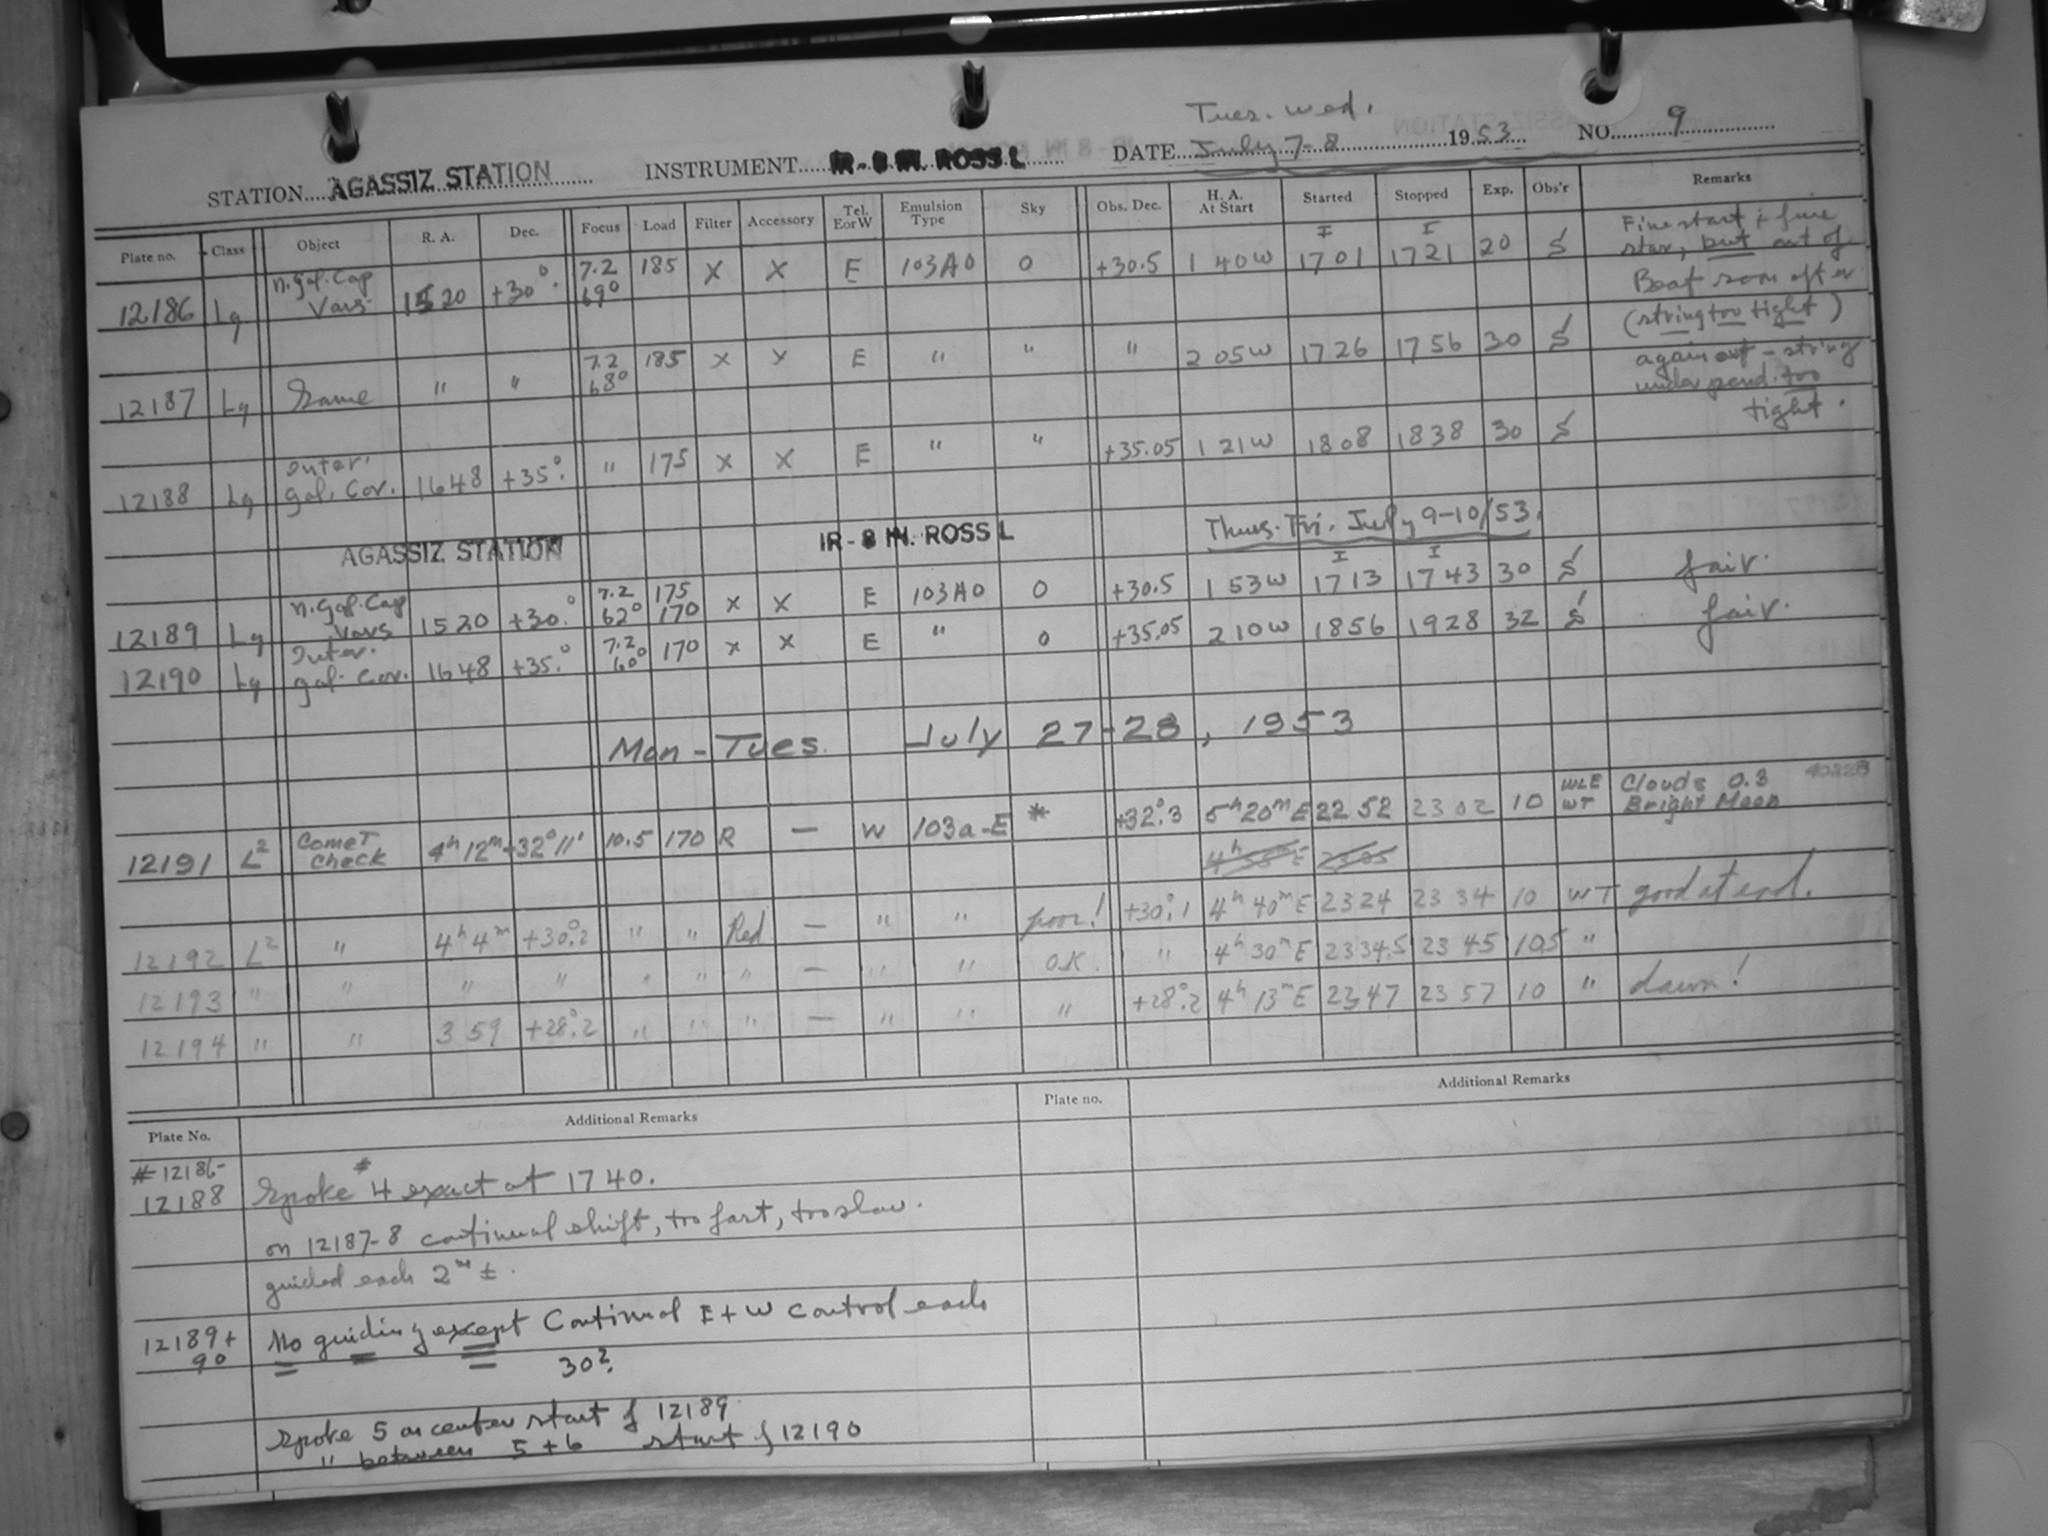 Tues. Wed.
STATION AGASSIZ STATION INSTRUMENT IR-8 IN. ROSS L DATE July 7-8 1953 NO. 9
Plate no. Class Object R. A. Dec. Focus Load Filter Accessory Tel. E or W Emulsion Type Sky Obs. Dec. H. A. At Start Started Stopped Exp. Obs'r Remarks
12186 Lg n. Gal. Cap Vars 15 20 +30°. 7.2 69° 185 X X E 103AO 0 +30.5 1 40W I 17 01 I 17 21 20 S Fine start + fine star, but out of Beat soon after (string too tight)
12187 Lg Same " " 7.2 68° 185 X X E " " " 2 05W 17 26 17 56 30 S again out - string under pend. too tight.
12188 Lg Inter. gal. Cor. 16 48 +35°. " 175 X X E " " +35.05 1 21W 18 08 18 38 30 S
AGASSIZ STATION IR-8 IN. ROSS L Thurs. Fri. July 9-10/53.
12189 Lg n. Gal. Cap Vars 15 20 +30.° 7.2 62° 175 170 X X E 103AO 0 +30.5 1 53W I 17 13 I 17 43 30 S fair.
12190 Lg Inter. gal. Cor. 16 48 +35.° 7.2 60° 170 X X E " 0 +35.05 2 10W 18 56 19 28 32 S fair.
Mon - Tues. July 27-28, 1953
12191 L² Comet Check 4ʰ 12ᵐ +32°11' 10.5 170 R — W 103a-E * +32°.3 5ʰ 20ᵐ E 22 52 23 02 10 WLE WT Clouds 0.3 Bright Moon
4ʰ 58ᵐ E 23 05
12192 L² " 4ʰ 4ᵐ +30°.2 " " Red — " " poor! +30°.1 4ʰ 40ᵐ E 23 24 23 34 10 WT good at end.
12193 " " " " " " " — " " O.K. " 4ʰ 30ᵐ E 23 34.5 23 45 10.5 "
12194 " " 3 59 +28°.2 " " " — " " " +28°.2 4ʰ 13ᵐ E 23 47 23 57 10 " dawn!
Plate No. Additional Remarks Plate no. Additional Remarks
# 12186-
12188 Spoke #4 exact at 17 40.
on 12187-8 continual shift, too fast, too slow.
guided each 2ᵐ ±.
12189+
90 No guiding except Continual E + W control each
30ˢ.
Spoke 5 on center start of 12189
" between 5 + 6 start of 12190